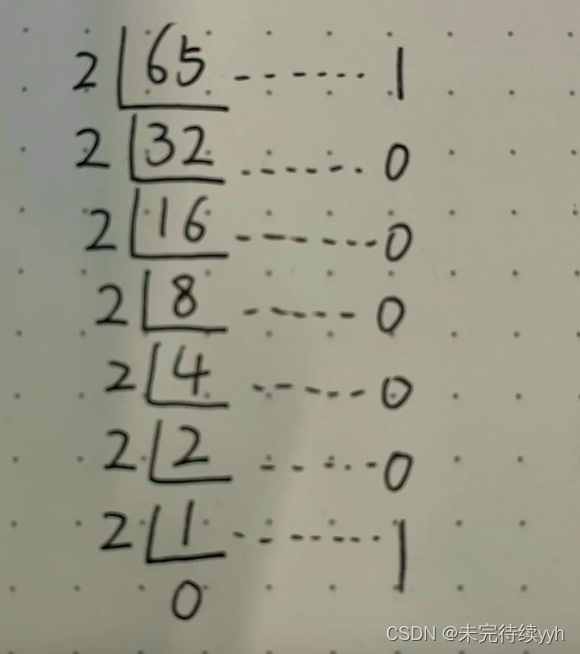 2 65 ------- 1
2 32 ------- 0
2 16 ------- 0
2 8 ------- 0
2 4 ------- 0
2 2 ------- 0
2 1 ------- 1
0
CSDN @未完待续yyh